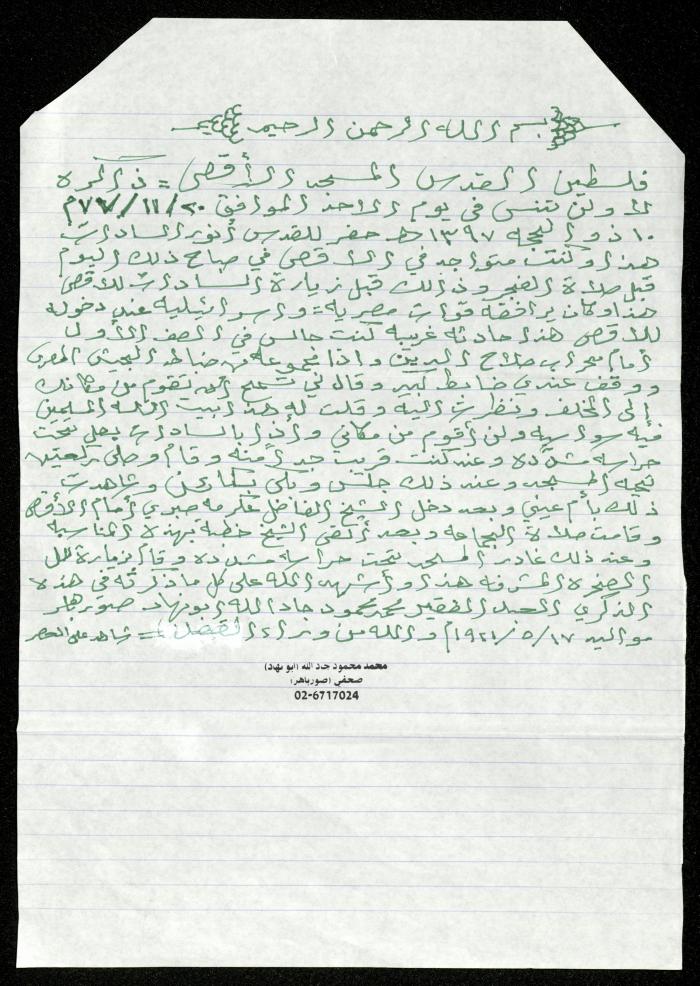 بسم الله الرحمن الرحيم
فلسطين القدس المسجد الأقصى = ذاكرة
لا ولن تنسى في يوم الاحد الموافق ٢٠/١١/٧٧م
١٠ ذو الحجه ١٣٩٧ هـ حضر للقدس أنور السادات
هذا وكنت متواجد في الاقصى في صباح ذلك اليوم
قبل صلاة الفجر وذالك قبل زيارة السادات للاقصى
هذا وكان يرافقه قوات مصرية = واسرائيلية عند دخوله
للاقصى هذا حادثه غريبه كنت جالس في الصف الأول
أمام محراب صلاح الدين واذا مجموعه من ضباط الجيش المصري
ووقف عندي ضابط كبير وقال لي تسمح ان تقوم من مكانك
إلى الخلف ونظرت اليه وقلت له هذا بيت الله المسلمين
فيه سواسيه ولن أقوم من مكاني واذا بالسادات يصل تحت
حراسه مشدده وعند كنت قريب جدا منه وقام وصلى ركعتين
تحيه المسجد وعند ذلك جلس وبكى وشاهدت
ذلك بأم عيني وبعد دخل الشيخ الفاضل عكرمه صبري أمام الأقصى
وقامت صلاة الجماعه وبعد ألقى الشيخ خطبة بهذه المناسبه
وعند ذلك غادر المسجد تحت حراسه مشدده وقام بزيارة
الصخره المشرفه هذا وأشهد الله على كل ما ذكرته في هذه
الذكرى العبد الفقير محمد محمود جاد الله ابو نهاد صور باهر
مواليد ١٧/٥/١٩٢١م والله من وراء القصد = شاهد على العصر
محمد محمود جاد الله (ابو نهاد)
صحفي (صورباهر)
02-6717024